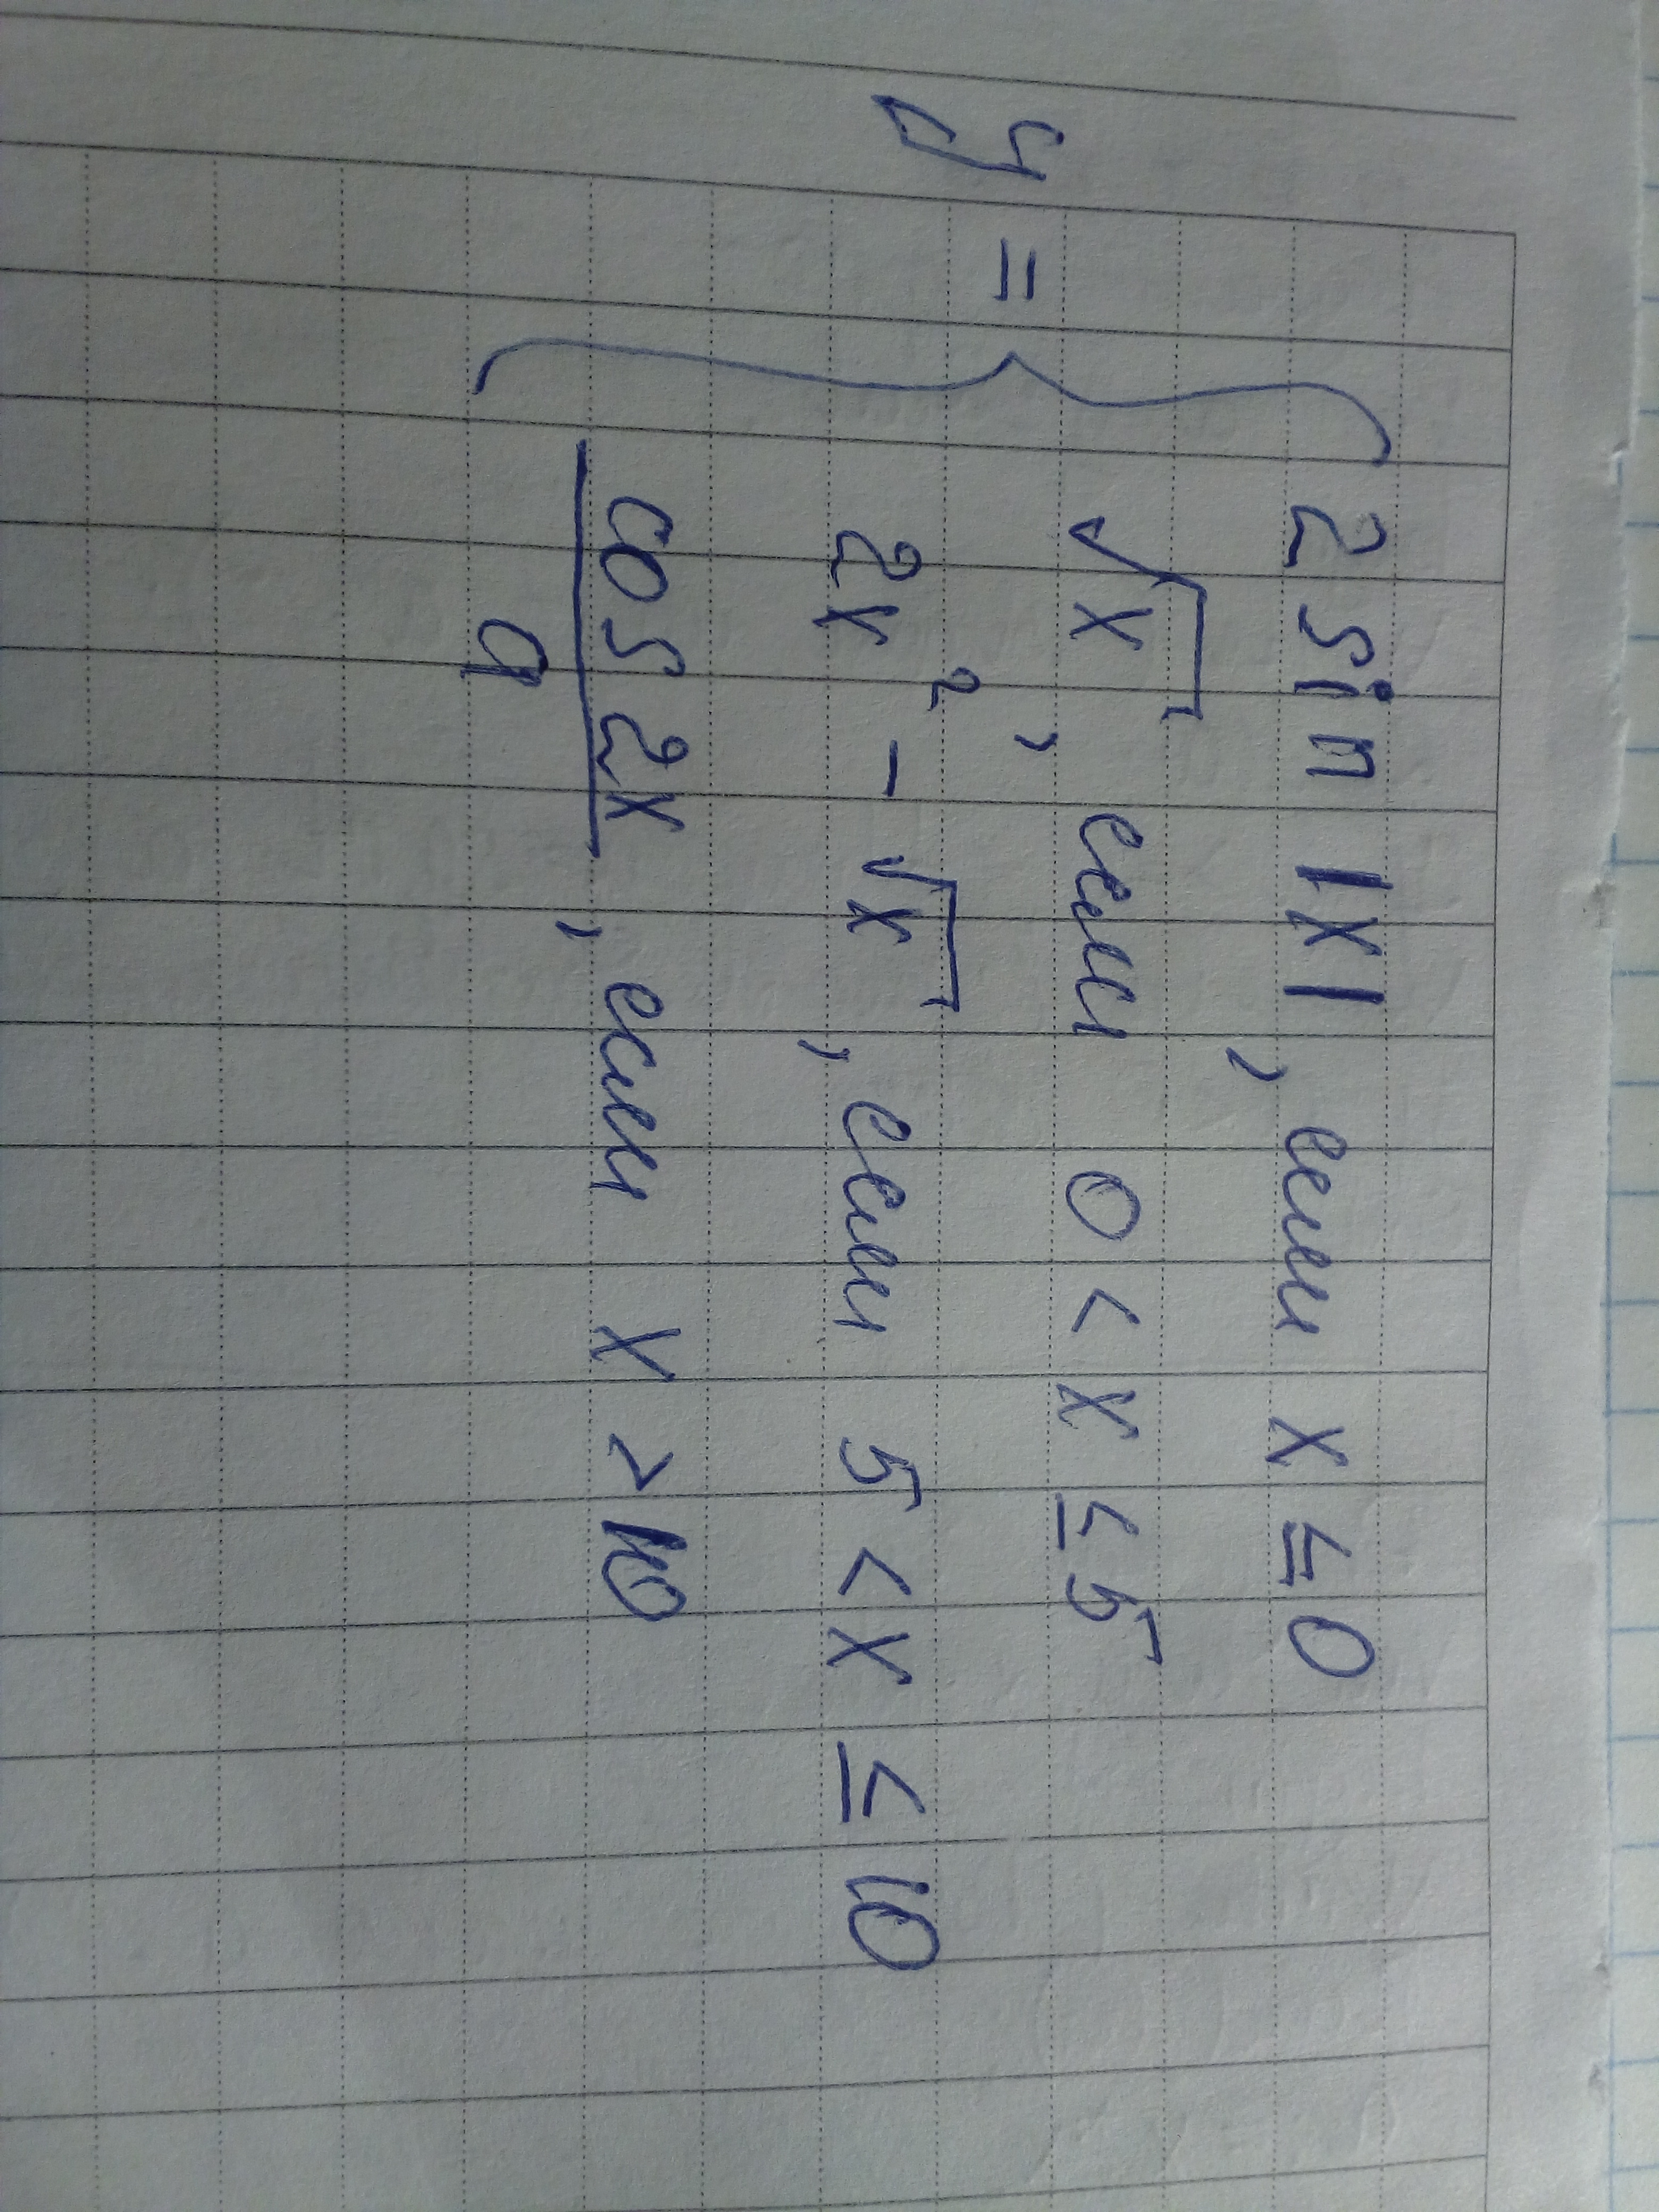 y = { 2 sin |x|, если x ≤ 0
√x, если 0 < x ≤ 5
2x² - √x, если 5 < x ≤ 10
cos 2x / 9, если x > 10